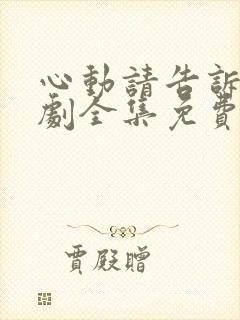 心動請告訴
劇全集免費
賈殿贈